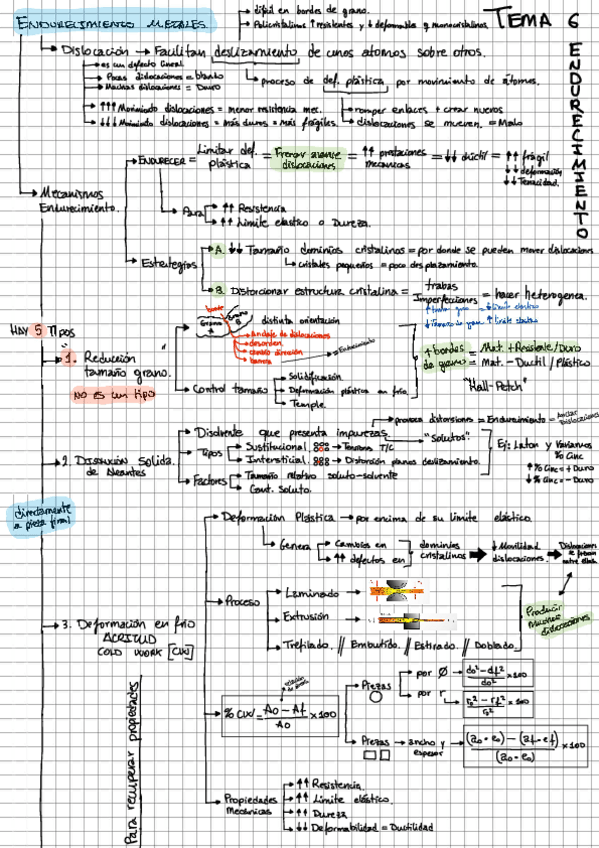 TEMA 6
ENDURECIMIENTO
ENDURECIMIENTO METALES
difícil en bordes de grano.
Policristalinos ↑ resistentes y ↓ deformables q monocristalinos.
Dislocación → Facilitan deslizamiento de unos atomos sobre otros.
es un defecto lineal.
Pocas dislocaciones = blando
Muchas dislocaciones = Duro
proceso de def. plástica por movimiento de átomos.
↑↑↑ Movimiento dislocaciones = menor resistencia mec.
↓↓↓ Movimiento dislocaciones = más duros = más frágiles.
romper enlaces + crear nuevos
dislocaciones se mueven. = Malo
Mecanismos Endurecimiento.
ENDURECER = Limitar def. plástica = Frenar avance dislocaciones = ↑↑ prestaciones mecanicas = ↓↓ dúctil = ↑↑ frágil
↓↓ deformación
↓↓ Tenacidad.
Para
↑↑ Resistencia
↑↑ Limite elastico o Dureza.
Estrategias
A. ↓↓ Tamaño dominios cristalinos = por donde se pueden mover dislocaciones
cristales pequeños = poco desplazamiento.
B. Distorcionar estructura cristalina = trabas Imperfecciones = hacer heterogenea.
HAY 5 Tipos
1. Reducción tamaño grano.
NO ES UN TIPO
Grano A
Grano B
borde
distinta orientación
Anclaje de dislocaciones
desorden
cambio dirección
barrera
Endurecimiento
Control tamaño
Solidificación
Deformación plástica en frío
Temple.
+ bordes de grano = Mat. + Resistente/Duro
= Mat. - Ductil / Plástico
"Hall-Petch"
2. Disolución Solida de Aleantes
Disolvente que presenta impurezas
"Solutos".
provoca distorsiones = Endurecimiento = Anclar Dislocaciones
Tipos
Sustitucional → Tensiones T/C
Intersticial → Distorsión planos deslizamiento.
Factores
Tamaño relativo soluto-solvente
Cant. Soluto.
Ej: Laton y Variamos % Cinc
↑ % Cinc = + Duro
↓ % Cinc = - Duro
directamente a pieza final
3. Deformación en frio
ACRITUD
COLD WORK [CW]
Deformación Plástica → por encima de su limite elástico.
Genera
Cambios en
↑↑ defectos en
dominios cristalinos
↓ Movilidad dislocaciones.
Dislocaciones se frenan entre ellas.
Proceso
Laminado
Extrusión
Trefilado. // Embutido. // Estirado. // Doblado.
Producir muchas dislocaciones
% CW = (Ao - Af)/Ao × 100
Piezas
por Ø → (do² - df²)/do² × 100
por r → (ro² - rf²)/ro² × 100
Piezas → ancho y espesor → ((ao · eo) - (af · ef))/(ao · eo) × 100
Propiedades Mecánicas
↑↑ Resistencia
↑↑ Limite elástico.
↑↑ Dureza
↓↓ Deformabilidad = Ductilidad
Para recuperar propiedades